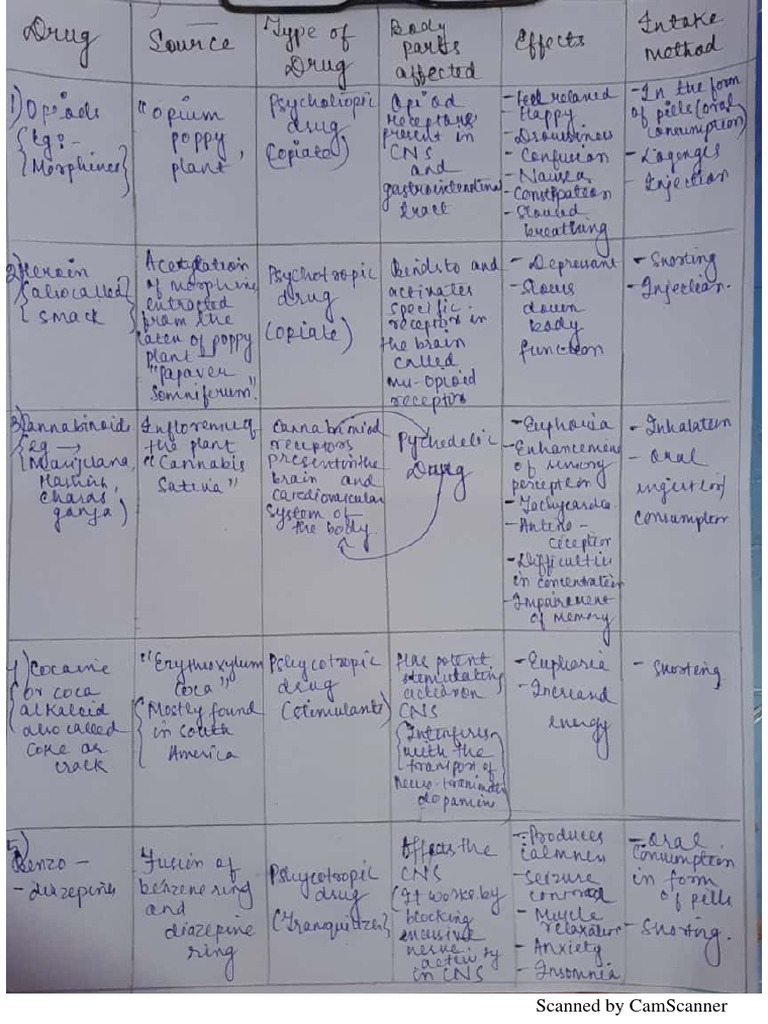 Drug
Source
Type of
Drug
Body
parts
affected
Effects
Intake
method
1) Opiods
{ Eg:-
{ Morphines }
"Opium
poppy
plant,
Psychotropic
drug
(opiate)
Opiod
receptors
present in
CNS
and
gastrointestinal
tract
- Feel relaxed
- Happy
- Drowsiness
- Confusion
- Nausea
- Constipation
- Slowed
breathing
- In the form
of pills (oral
consumption)
- Lozenges
- Injection
2) Heroin
{ also called }
{ smack }
Acetylation
of morphine
extracted
from the
latex of poppy
plant
"Papaver
Somniferum".
Psychotropic
drug
(opiate)
Binds to and
activates
specific
receptor in
the brain
called
mu-opioid
receptors
- Depressant
- Slows
down
body
function
- Snorting
- Injection.
3) Cannabinoids
{ eg →
Marijuana,
Hashish,
Charas,
ganja )
Inflorescence of
the plant
"Cannabis
Sativa"
Cannabiniod
receptors
present in the
brain and
cardiovascular
system of
the body.
Pychedelic
Drug
- Euphoria
- Enhancement
of sensory
perception
- Tachycardia
- Antino-
ciceptor
- Difficulties
in concentration
- Impairement
of memory
- Inhalation
- Oral
ingestion/
consumption
4) Cocaine
or coca
alkaloid
also called
coke or
crack
"Erythroxylum
coca"
{ Mostly found
in south
America
Psycotropic
drug
(stimulants)
Has potent
stimulating
action on
CNS
{ Interferes
with the
transport of
neuro-transmitter
dopamine
- Euphoria
- Increased
energy
- Snorting
5)
Benzo-
- diazepines
Fusion of
benzene ring
and
diazepine
ring
Psycotropic
drug
(Tranquilizer)
Affects the
CNS
(It works by
blocking
excessive
nerve
activity
in CNS
- Produces
calmness
- Seizure
control
- Muscle
relaxation
- Anxiety
- Insomnia
- Oral
consumption
in form
of pills
- Snorting.
Scanned by CamScanner